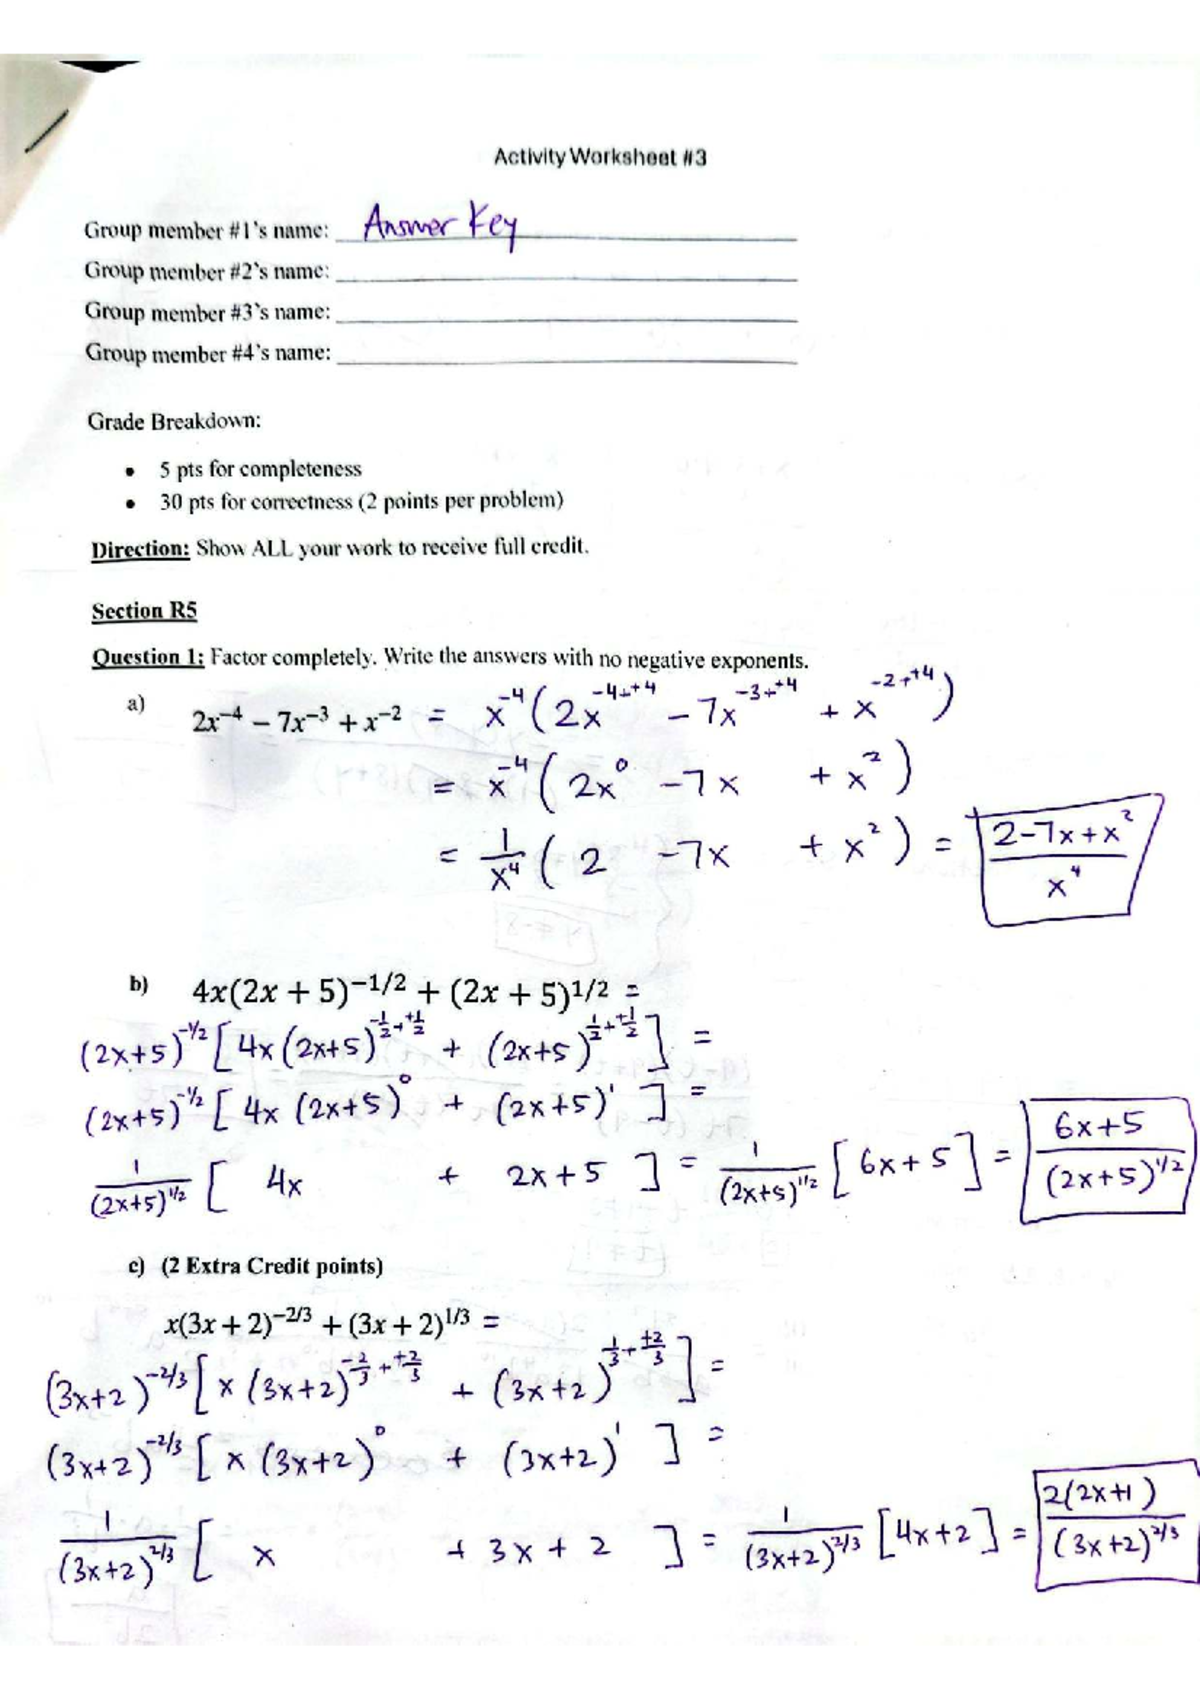 Activity Worksheet #3
Group member #1's name: Answer Key
Group member #2's name:
Group member #3's name:
Group member #4's name:
Grade Breakdown:
• 5 pts for completeness
• 30 pts for correctness (2 points per problem)
Direction: Show ALL your work to receive full credit.
Section R5
Question 1: Factor completely. Write the answers with no negative exponents.
a) 2x⁻⁴ – 7x⁻³ + x⁻² = x⁻⁴ ( 2x⁻⁴⁺⁺⁴ – 7x⁻³⁺⁺⁴ + x⁻²⁺⁺⁴ )
= x⁻⁴ ( 2x⁰ – 7x + x² )
= 1/x⁴ ( 2 – 7x + x² ) = (2–7x+x²)/x⁴
b) 4x(2x + 5)^(−1/2) + (2x + 5)^(1/2) =
(2x+5)^(-1/2) [ 4x (2x+5)^(-1/2 + +1/2) + (2x+5)^(1/2 + +1/2) ] =
(2x+5)^(-1/2) [ 4x (2x+5)⁰ + (2x+5)¹ ] =
1/(2x+5)^(1/2) [ 4x + 2x+5 ] = 1/(2x+5)^(1/2) [ 6x+5 ] = (6x+5)/(2x+5)^(1/2)
c) (2 Extra Credit points)
x(3x + 2)^(−2/3) + (3x + 2)^(1/3) =
(3x+2)^(-2/3) [ x (3x+2)^(-2/3 + +2/3) + (3x+2)^(1/3 + +2/3) ] =
(3x+2)^(-2/3) [ x (3x+2)⁰ + (3x+2)¹ ] =
1/(3x+2)^(2/3) [ x + 3x + 2 ] = 1/(3x+2)^(2/3) [4x+2] = 2(2x+1)/(3x+2)^(2/3)